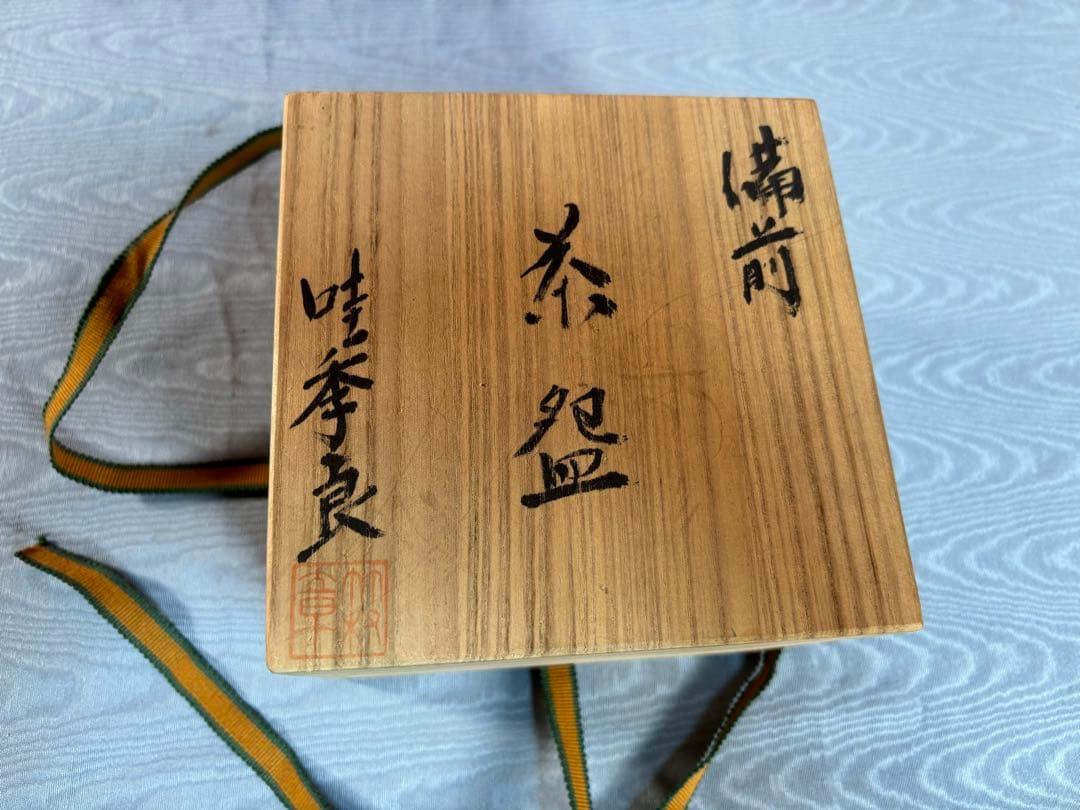 備前
茶盌
哇季良